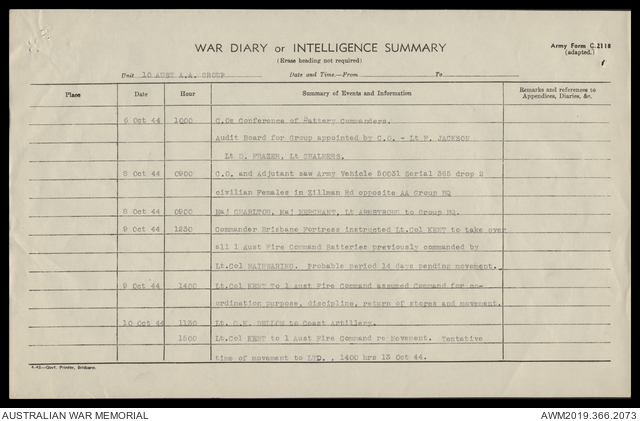 WAR DIARY or INTELLIGENCE SUMMARY
(Erase heading not required)
Army Form C.2118
(adapted.)
1
Unit 10 AUST A.A. GROUP Date and Time.—From To
Place Date Hour Summary of Events and Information Remarks and references to
Appendices, Diaries, &c.
6 Oct 44 1000 C.Os Conference of Battery Commanders.
Audit Board for Group appointed by C.O. - Lt F. JACKSON
Lt D. FRAZER, Lt CHALMERS.
8 Oct 44 0900 C.O. and Adjutant saw Army Vehicle 50031 Serial 365 drop 2
civilian Females in Zillman Rd opposite AA Group HQ
8 Oct 44 0900 Maj CHARLTON, Maj MERCHANT, Lt ARMSTRONG to Group HQ.
9 Oct 44 1230 Commander Brisbane Fortress instructed Lt.Col KENT to take over
all 1 Aust Fire Command Batteries previously commanded by
Lt.Col MAINWARING. Probable period 14 days pending movement.
9 Oct 44 1400 Lt.Col KENT To 1 Aust Fire Command assumed Command for co-
ordination purpose, discipline, return of stores and movement.
10 Oct 44 1130 Lt. BELLOW to Coast Artillery.
1500 Lt.Col KENT to 1 Aust Fire Command re Movement. Tentative
time of movement to LTD. , 1400 hrs 13 Oct 44.
4.43—Govt. Printer, Brisbane.
AUSTRALIAN WAR MEMORIAL AWM2019.366.2073